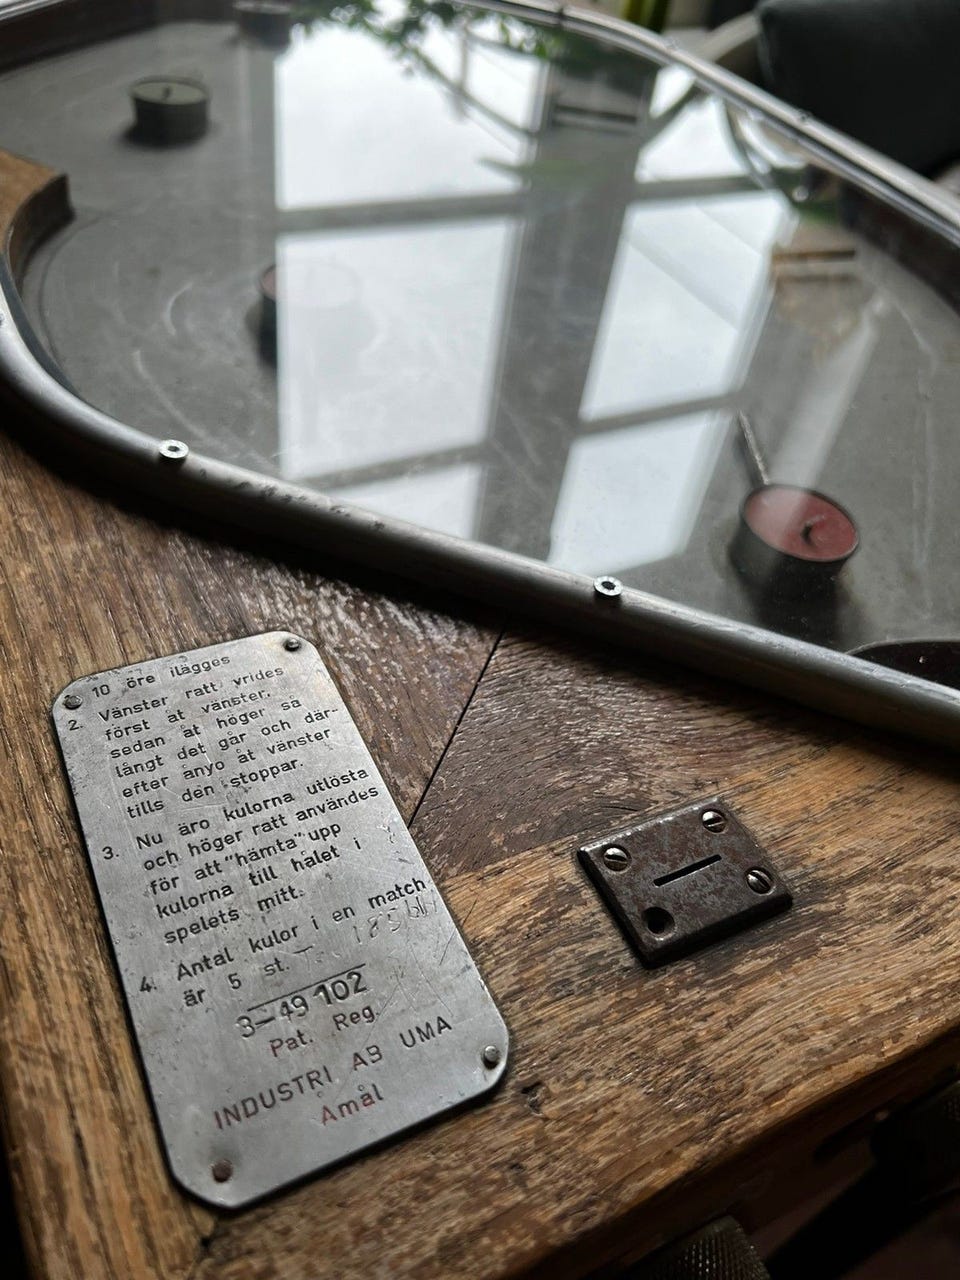 10 öre ilägges
2. Vänster ratt vrides
först åt vänster,
sedan åt höger så
långt det går och där-
efter anyo åt vänster
tills den stoppar.
3. Nu äro kulorna utlösta
och höger ratt användes
för att "hämta" upp
kulorna till hålet i
spelets mitt.
4. Antal kulor i en match
är 5 st.
3-49 102
Pat. Reg.
INDUSTRI AB UMA
Åmål